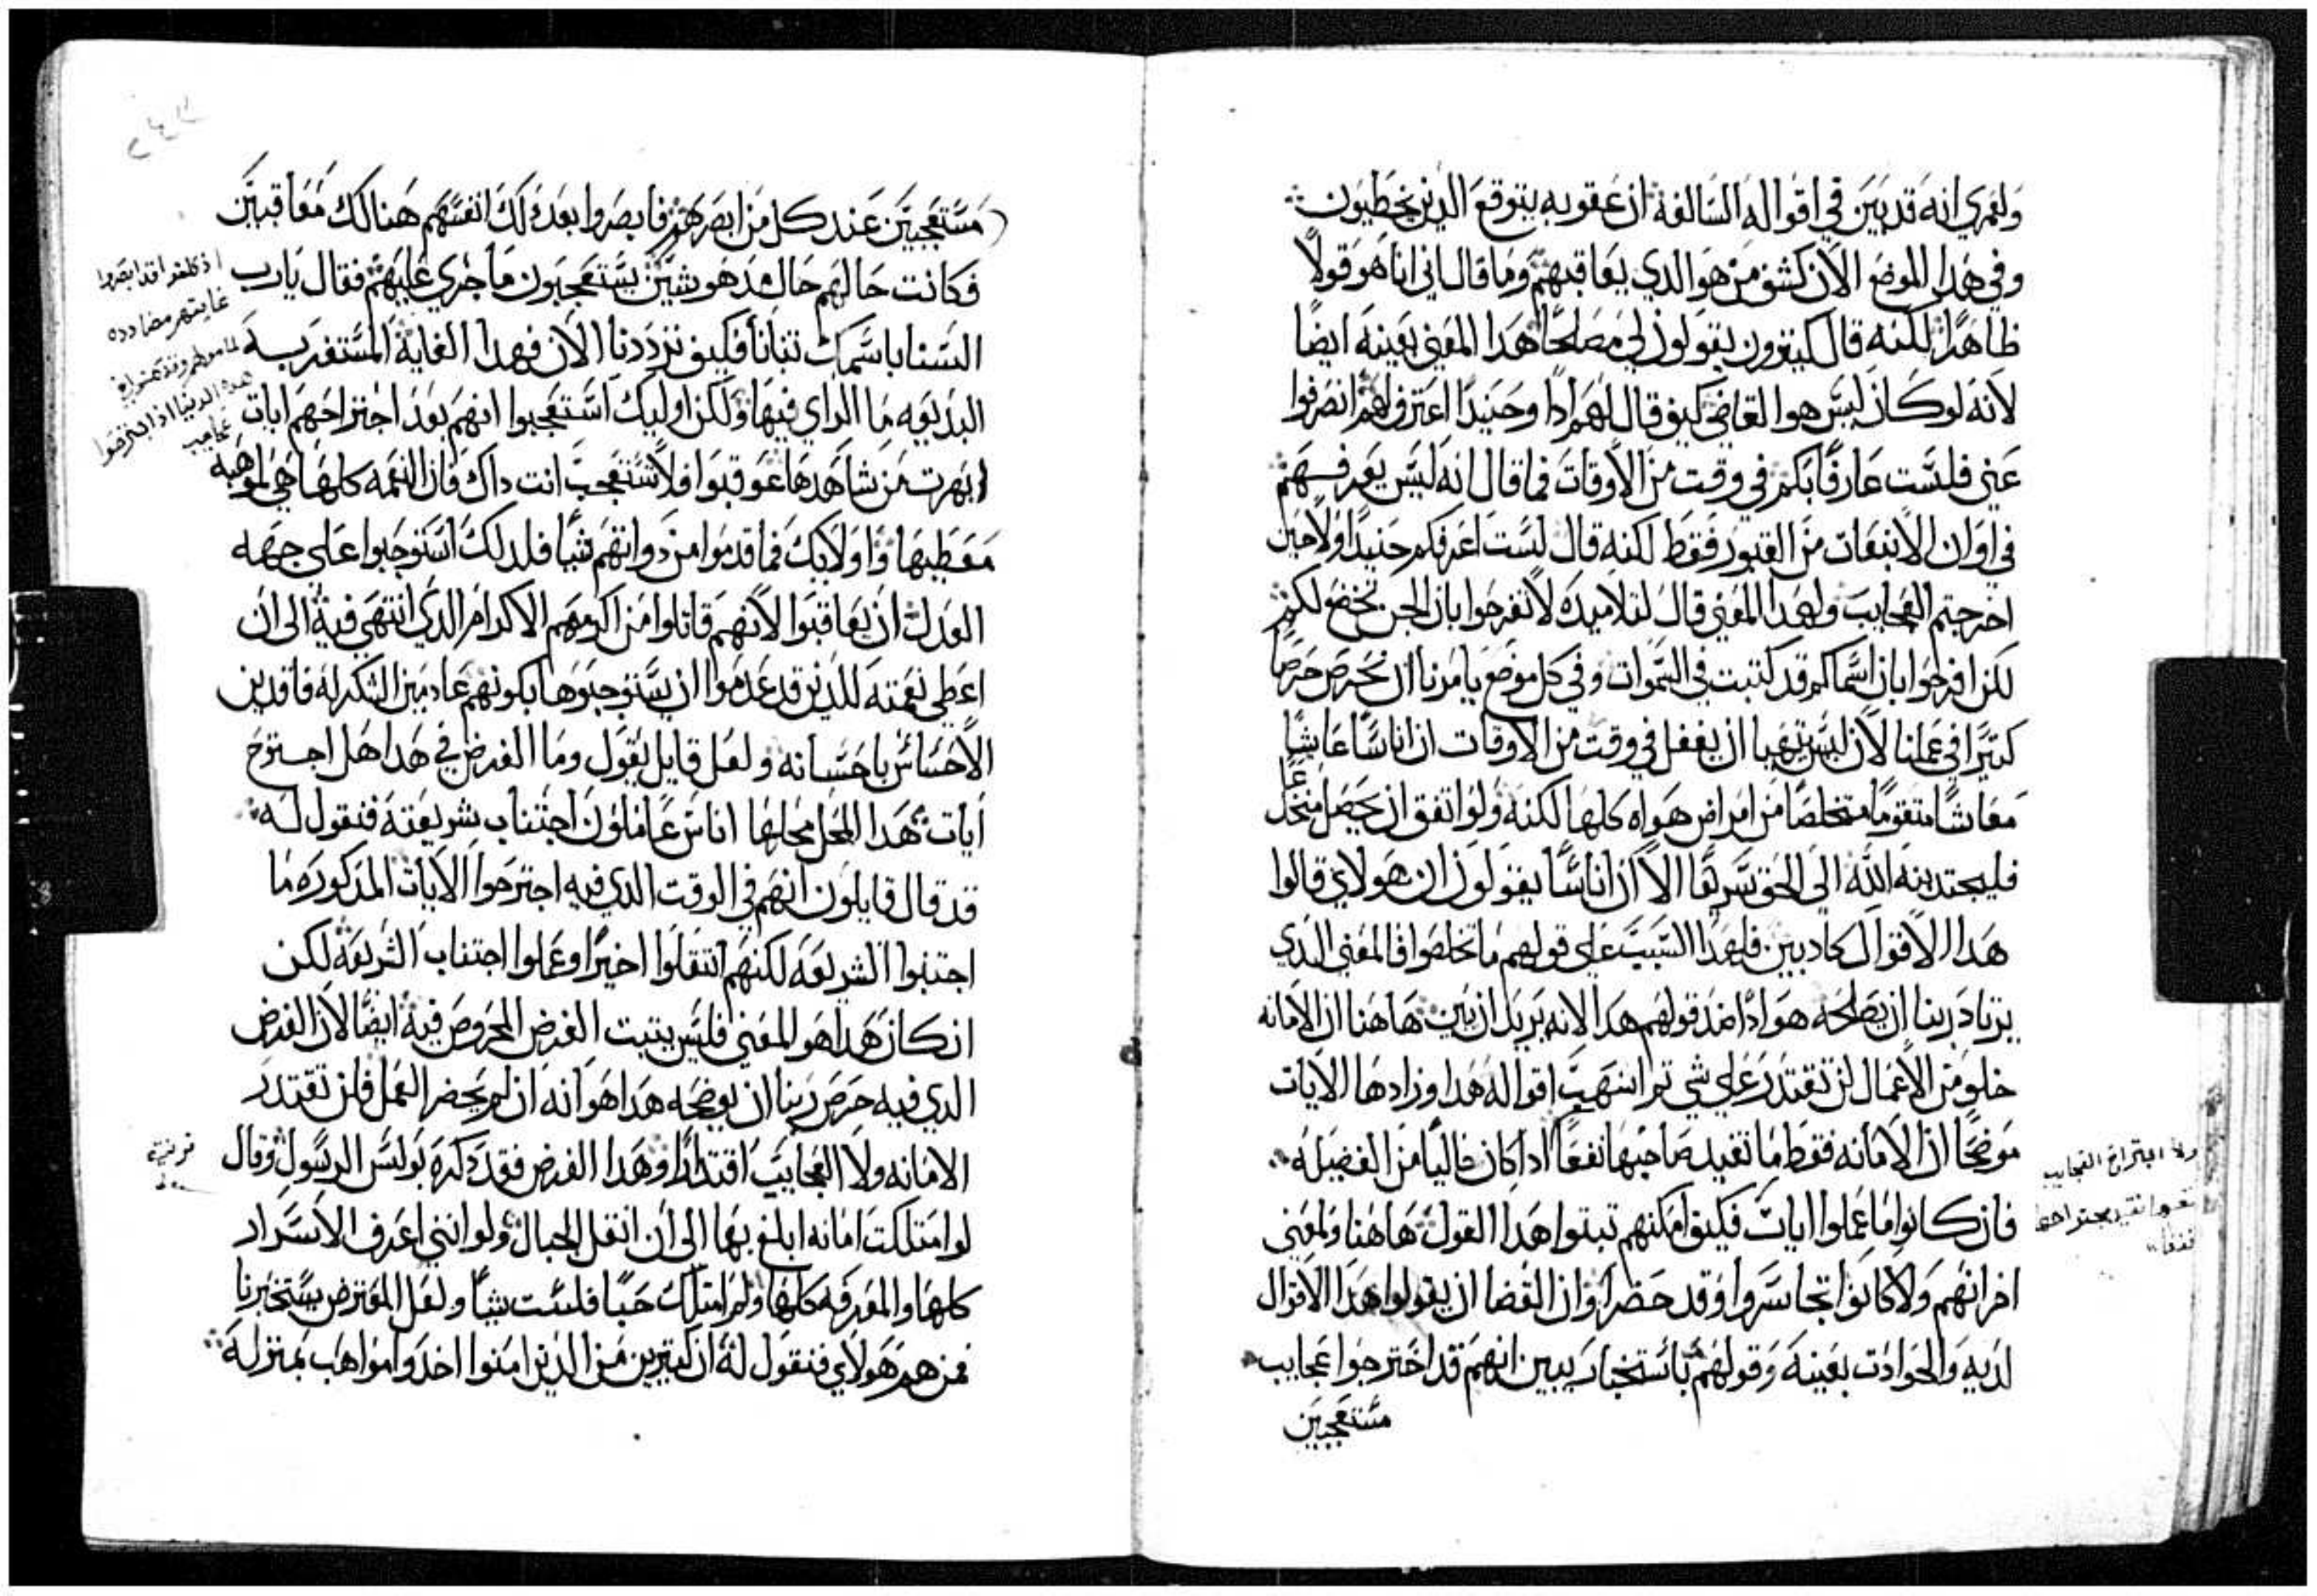 ولعمري انه قد بين في اقواله السالفة ان عقوبه يتوقع الذين يخطيون
وفي هدا الموضع الان كشف من هو الدي يعاقبهم وما قال اني انا هو قولاً
ظاهراً لكنه قال كتيرون يقولون لي مصلحاً هدا المعني بعينه ايضاً
لانه لو كان ليس هو القاضي كيف قال لهم اداً وحنيداً اعترف لهم انصرفوا
عني فلست عارفاً بكم في وقت من الاوقات فما قال انه ليس يعرفهم
في اوان الانبعات من القبور فقط لكنه قال لست اعرفكم حنيداً ولا حين
اخرجتم العجايب ولهدا المعني قال لتلاميده لا تفرحوا بان الجن تخضع لكم
لكن افرحوا بان اسماكم قد كتبت في السموات وفي كل موضع يامرنا ان نحرص حرصاً
كتيراً في عملنا لان ليس يتهيا ان يغفل في وقت من الاوقات ان اناساً عايشاً
معاشاً متقوماً متخلصاً من امراض هواه كلها لكنه ولو اتفق ان يحصل
فليجتدبنه الله الي الحق سريعاً الا ان اناساً يقولون ان هولاي قالوا
هدا الاقوال كادبين فلهدا السبب علي قولهم ما تخلصوا فالمعني الدي
يرتاد ربنا ان يصلحه هو اداً ضد قولهم هدا لانه يريد ان يبين هاهنا ان الامانه
خلو من الاعمال لن تقتدر علي شي تم اسهب اقواله هدا وزادها الايات
موضحاً ان الامانه فقط ما تفيد صاحبها نفعاً ادا كان خالياً من الفضيله
فان كانوا ما عملوا ايات فكيف امكنهم تبتوا هدا القول هاهنا ولعني
اخراتهم ولا كانوا تجاسروا وقد حضر اوان القضا ان يقولوا هدا الاقوال
لديه والحوادت بعينه وقولهم باستخبار يبين انهم قد اخترجوا عجايب
مستعجبين
ولا اجتراح العجايب
مستعجبين عند كل من ابصرهم فابصروا بعد دلك انفسهم هنالك معاقبين
فكانت حالهم حال مدهوشين يستعجبون ما جري عليهم فقال يارب
السنا باسمك تنبانا فكيف تزددنا الان فهدا الغاية المستغربه
البديعه ما الراي فيها ولكن اوليك استعجبوا انهم بعد اجتراحهم ايات
ابهرت من شاهدها عوقبوا فلا تستعجب انت داك فان النعمه كلها هي موهبه
معطيها واولايك فما قدموا من دواتهم شياً فلدلك استوجبوا علي جهه
العدل ان يعاقبوا لانهم قاتلوا من اكرمهم الاكرام الدي انتهي فيه الي ان
اعطي نعمته للدين قد عدموا ان يستوجبوها بكونهم عادمين الشكر له فاقدين
الاحساس باحسانه ولعل قايل يقول وما الغرض في هدا هل اجترح
ايات هدا المحل محلها اناس عاملون اجتناب شريعته فنقول له
قد قال قايلون انهم في الوقت الدي فيه اجترحوا الايات المدكوره ما
اجتنبوا الشريعه لكنهم انتقلوا اخيراً وعملوا اجتناب الشريعة لكن
ان كان هدا هو المعني فليس يتبت الغرض المحروص فية ايضاً لان الغرض
الدي فيه حرص ربنا ان يوضحه هدا هو انه ان لم يحضر العمل فلن تقتدر
الامانه ولا العجايب اقتداراً وهدا الغرض فقد دكره بولس الرسول وقال
لو امتلكت امانه ابلغ بها الي ان انقل الجبال ولو انني اعرف الاسرار
كلها والمعرفه كلها ولم امتلك حباً فلست شياً ولعل المفترض يستخبرنا
فمن هم هولاي فنقول له ان كتيرين من الدين امنوا اخدوا مواهب بمنزلة